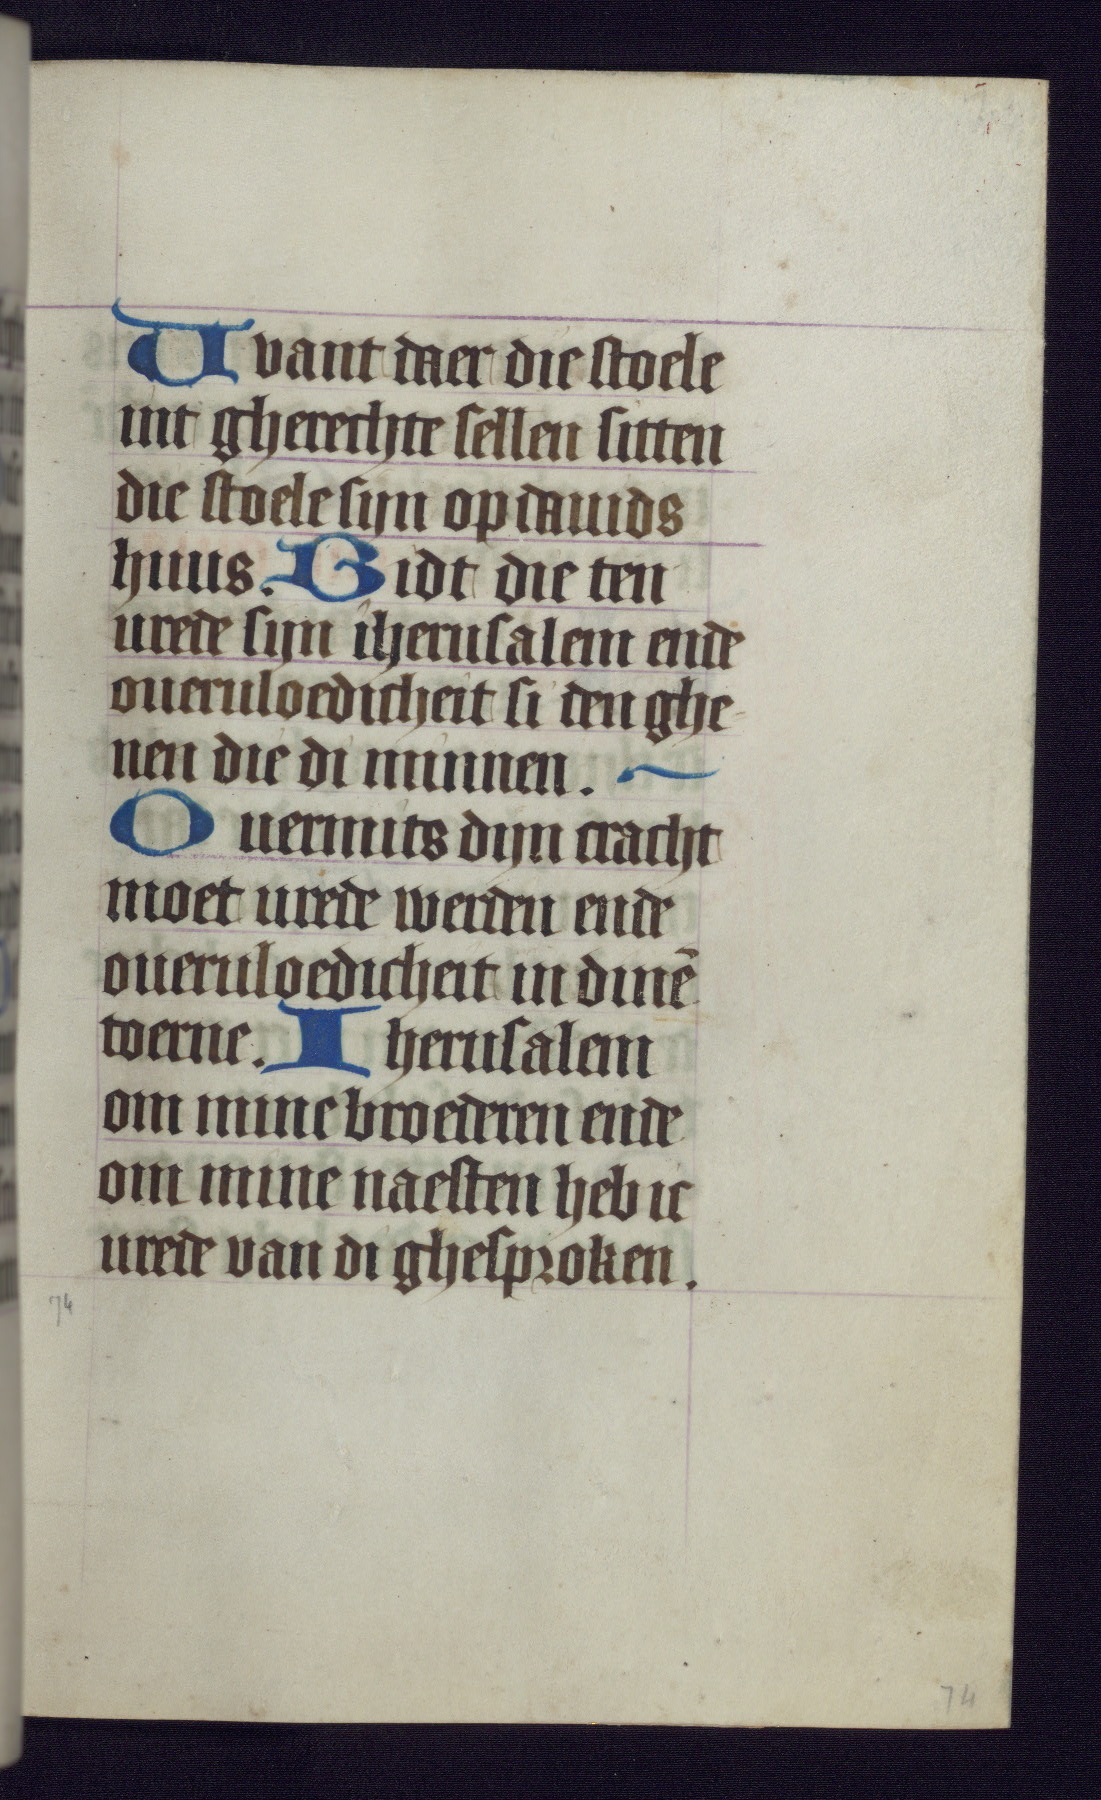 Uvant daer die stoele
int gherechte sellen sitten
die stoele sijn op dauids
huus. Bidt die ten
urede sijn iherusalem ende
oueruloedicheit si den ghe-
nen die di minnen.
Ouermits dijn cracht
moet urede werden ende
oueruloedicheit in dinē
toerne. Iherusalem
om mine broederen ende
om mine naesten heb ic
urede van di ghesproken.
74
74